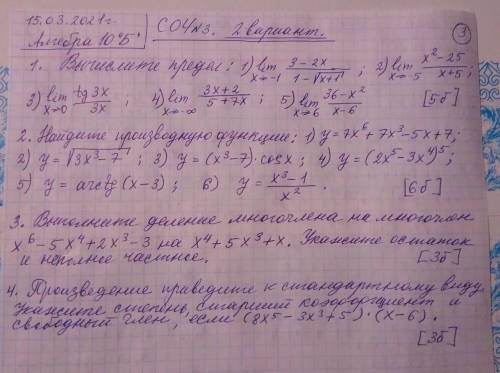 15.03.2021г.
Алгебра 10"Б"
СОЧ№3. 2 вариант.
3
1. Вычислите предел: 1) lim x→-1 (3-2x)/(1-√(x+1)); 2) lim x→-5 (x²-25)/(x+5);
3) lim x→0 (tg3x)/(3x); 4) lim x→-∞ (3x+2)/(5+7x); 5) lim x→6 (36-x²)/(x-6) [5б]
2. Найдите производную функции: 1) y=7x⁶+7x³-5x+7;
2) y=√(3x³-7); 3) y=(x³-7)·cosx; 4) y=(2x⁵-3x⁴)⁵;
5) y=arctg(x-3); 6) y=(x³-1)/x². [6б]
3. Выполните деление многочлена на многочлен
x⁶-5x⁴+2x³-3 на x⁴+5x³+x. Укажите остаток
и неполное частное. [3б]
4. Произведение приведите к стандартному виду.
Укажите степень, старший коэффициент и
свободный член, если (8x⁵-3x³+5)·(x-6).
[3б]